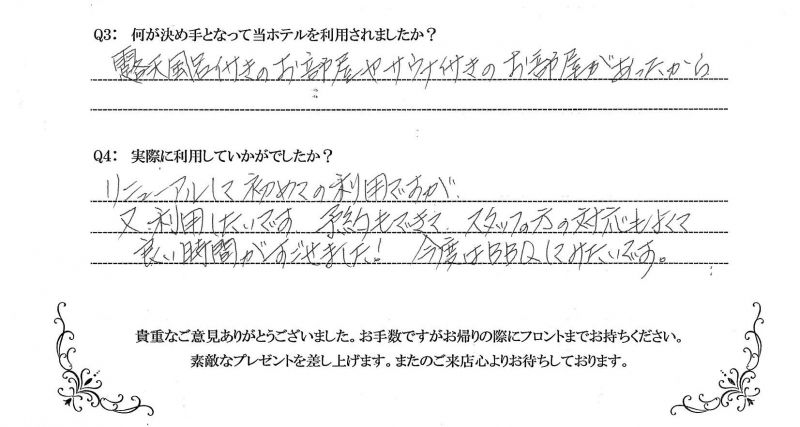 Q3: 何が決め手となって当ホテルを利用されましたか？
露天風呂付きのお部屋やサウナ付きのお部屋があったから
Q4: 実際に利用していかがでしたか？
リニューアルして初めての利用ですが、
又利用したいです 予約もできて スタッフの方の対応もよくて
良い時間がすごせました! 今度はBBQしてみたいです。
貴重なご意見ありがとうございました。お手数ですがお帰りの際にフロントまでお持ちください。
素敵なプレゼントを差し上げます。またのご来店心よりお待ちしております。